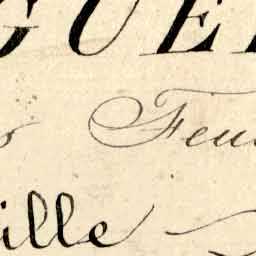 GUE
Feu
ille